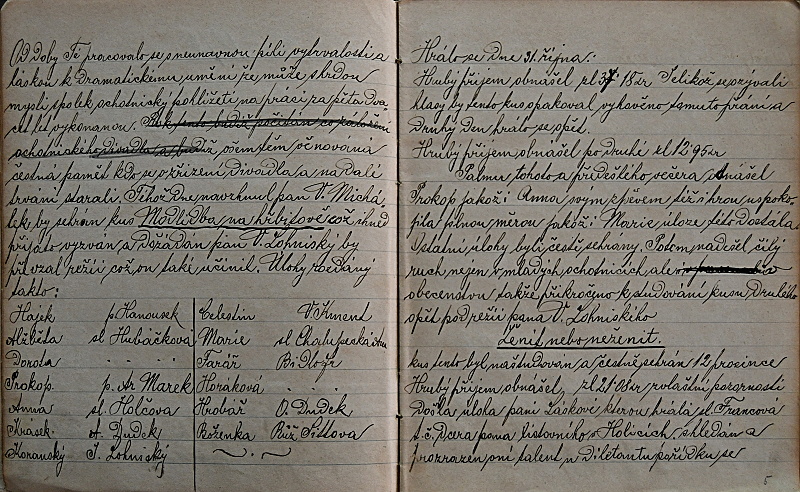 Od doby Té pracovalo se s neunavnou pílí vytrvalostí a
láskou k Dramatickému umění že může s hrdou
myslí spolek ochotnický pohlížeti na práci za pěta dva
cet let vykonanou. Rok tento budiž počítán co založení
ochotnického divadla a budiž, všem těm věnována
čestná paměť kdo se o zřízení Divadla a na dalí
trvání starali. Téhož dne navrhnul pan V. Michá-
lek, by sehrán kus Modledba na hřbitově což ihned
přijato vyzván a dožádán pan V. Lohniský by
převzal režii což on také učinil. Úlohy rozdány
takto:
Hajek p. Hanousek Celestin V. Kment
Alžběta sl. Hubačková Marie sl. Chalupecká
Dorota " " " Farář
Prokop p. Ar Marek Horáková " "
Anna sl. Holčova Hrobář O. Dudek
Krasek A. Dudek Boženka Růž Sittova
Koranský J. Lohniský
Hrálo se dne 31. října.
Hrubý příjem obnášel zl 37 18 kr Jelikož se ozývali
hlasy by tento kus opakoval vyhověno tamuto přání a
Druhý Den hrálo se opět.
Hrubý příjem obnášel po druhé zl 12 95 kr
Palmu tohoto a předešlého večera odnášel
Prokop jakož i Anna svym zpěvem též i hrou uspoko-
jila plnou měrou jakož i Marie úloze této dostála.
Ostatní úlohy byli čestě sehrany. Potom nadešel čilý
ruch nejen v mladých ochotnicích ale i v
obecenstvu takže přikročeno k studování kusu Druhého
opět pod režii pana V. Lohniského
Ženit nebo neženit.
kus tento byl nastudován a čestně sehrán 12 prosince
Hrubý příjem obnášel, zl 21 08 kr zvlaštní pozornosti
Došla úloha paní Žaskové kterou hrála sl. Francová
t. č. Dcera pana listovního v Holicích, shledán a
prozrazen oní talent v diletantu pořídku se
5